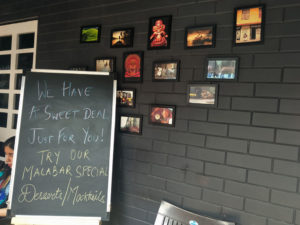 We Have
A Sweet Deal
Just For You!
Try Our
Malabar Special
Desserts/Mocktails